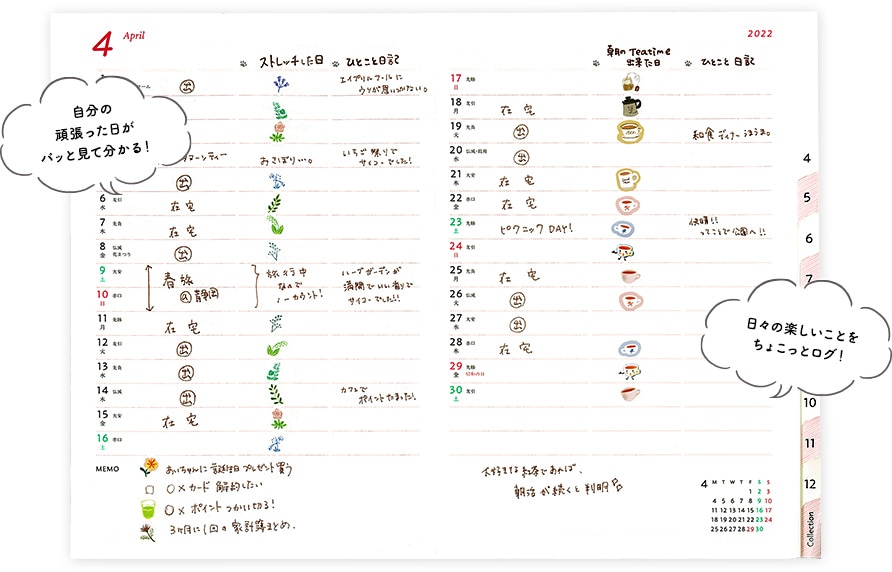 4 April
2022
ストレッチした日
ひとこと日記
朝のTeatime
出来た日
ひとこと 日記
自分の
頑張った日が
パッと見て分かる!
㊀
エイプリルフールに
ウソが思いつかない。
おさぼり…。
いちご祭りで
サイコーでした!
6 水 友引 在宅
7 木 先負 在宅
8 金 仏滅 花まつり 出
9 土 大安
春旅
@静岡
旅行中
なので
ノーカウント!
ハーブガーデンが
満開でいい香りで
サイコーでした!!
10 日 赤口
11 月 先勝 在宅
12 火 友引 出
13 水 先負 出
14 木 仏滅 出
カフェで
ポイントたまった!
15 金 大安 在宅
16 土 赤口
MEMO
あいちゃんに誕生日プレゼント買う
○×カード 解約したい
○×ポイントつかい切る!
3ヶ月に1回の家計簿まとめ.
17 日 先勝
18 月 友引 在宅
19 火 先負 出 和食ディナーうまうま。
20 水 仏滅・穀雨 出
21 木 大安 在宅
22 金 赤口 在宅
23 土 先勝 ピクニックDAY!
快晴!!
ってことで公園へ!!
24 日 友引
25 月 先負 在宅
26 火 仏滅 出
27 水 大安 出
28 木 赤口 在宅
29 金 先勝 昭和の日
30 土 友引
大好きな紅茶であれば、
朝活が続くと判明
日々の楽しいことを
ちょこっとログ!
4
5
6
7
10
11
12
Collection
4 M T W T F S S
1 2 3
4 5 6 7 8 9 10
11 12 13 14 15 16 17
18 19 20 21 22 23 24
25 26 27 28 29 30